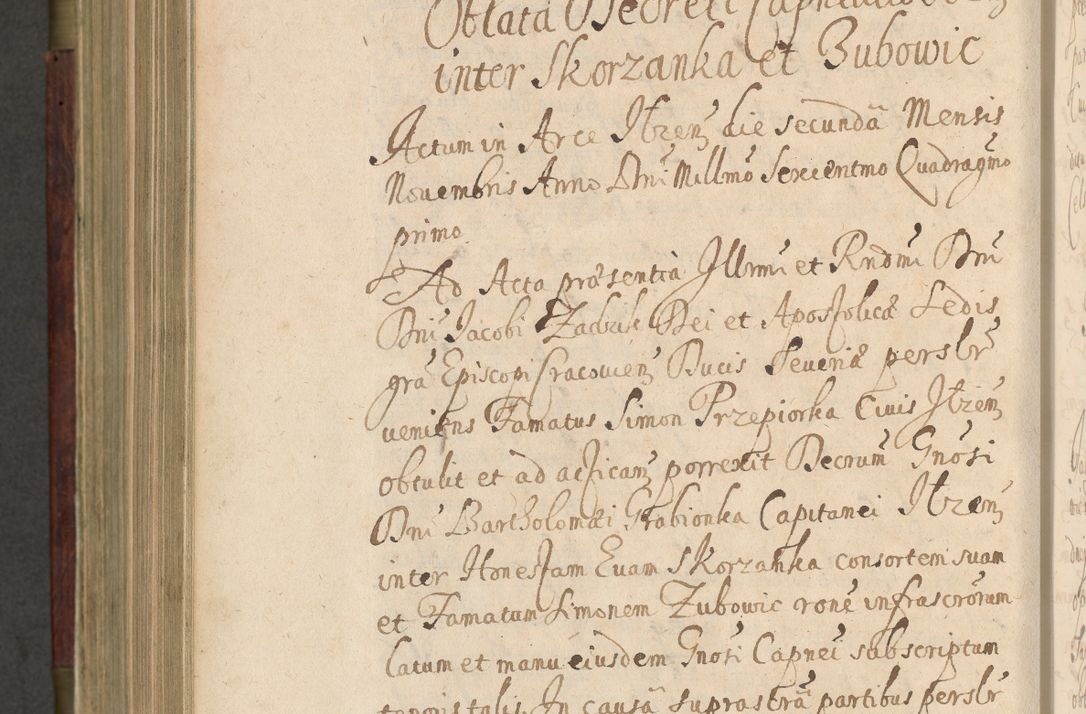 Oblata Decreti Capitanei
inter Skorzanka et Zubowic
Actum in Arce Ilzen die secunda Mensis
Nouembris Anno Dni Millmo Sexcentmo Quadragmo
primo.
Ad Acta præsentia Illrmi et Rndmi Dni
Dni Jacobi Zadzik Dei et Apostolicæ Sedis
gra Episcopi Cracouien Ducis Seueriæ perslr
ueniens Famatus Simon Przepiorka Ciuis Ilzen
obtulit et ad acticam porrexit Decrum Gnosi
Dni Bartholomæi Grabionka Capitanei Ilzen
inter Honestam Euam Skorzanka consortem suam
et Famatum Simonem Zubowic rone infrascrorum
latum et manu eiusdem Gnosi Capnei subscriptum
tenoris talis. In causa suprastra partibus perslr